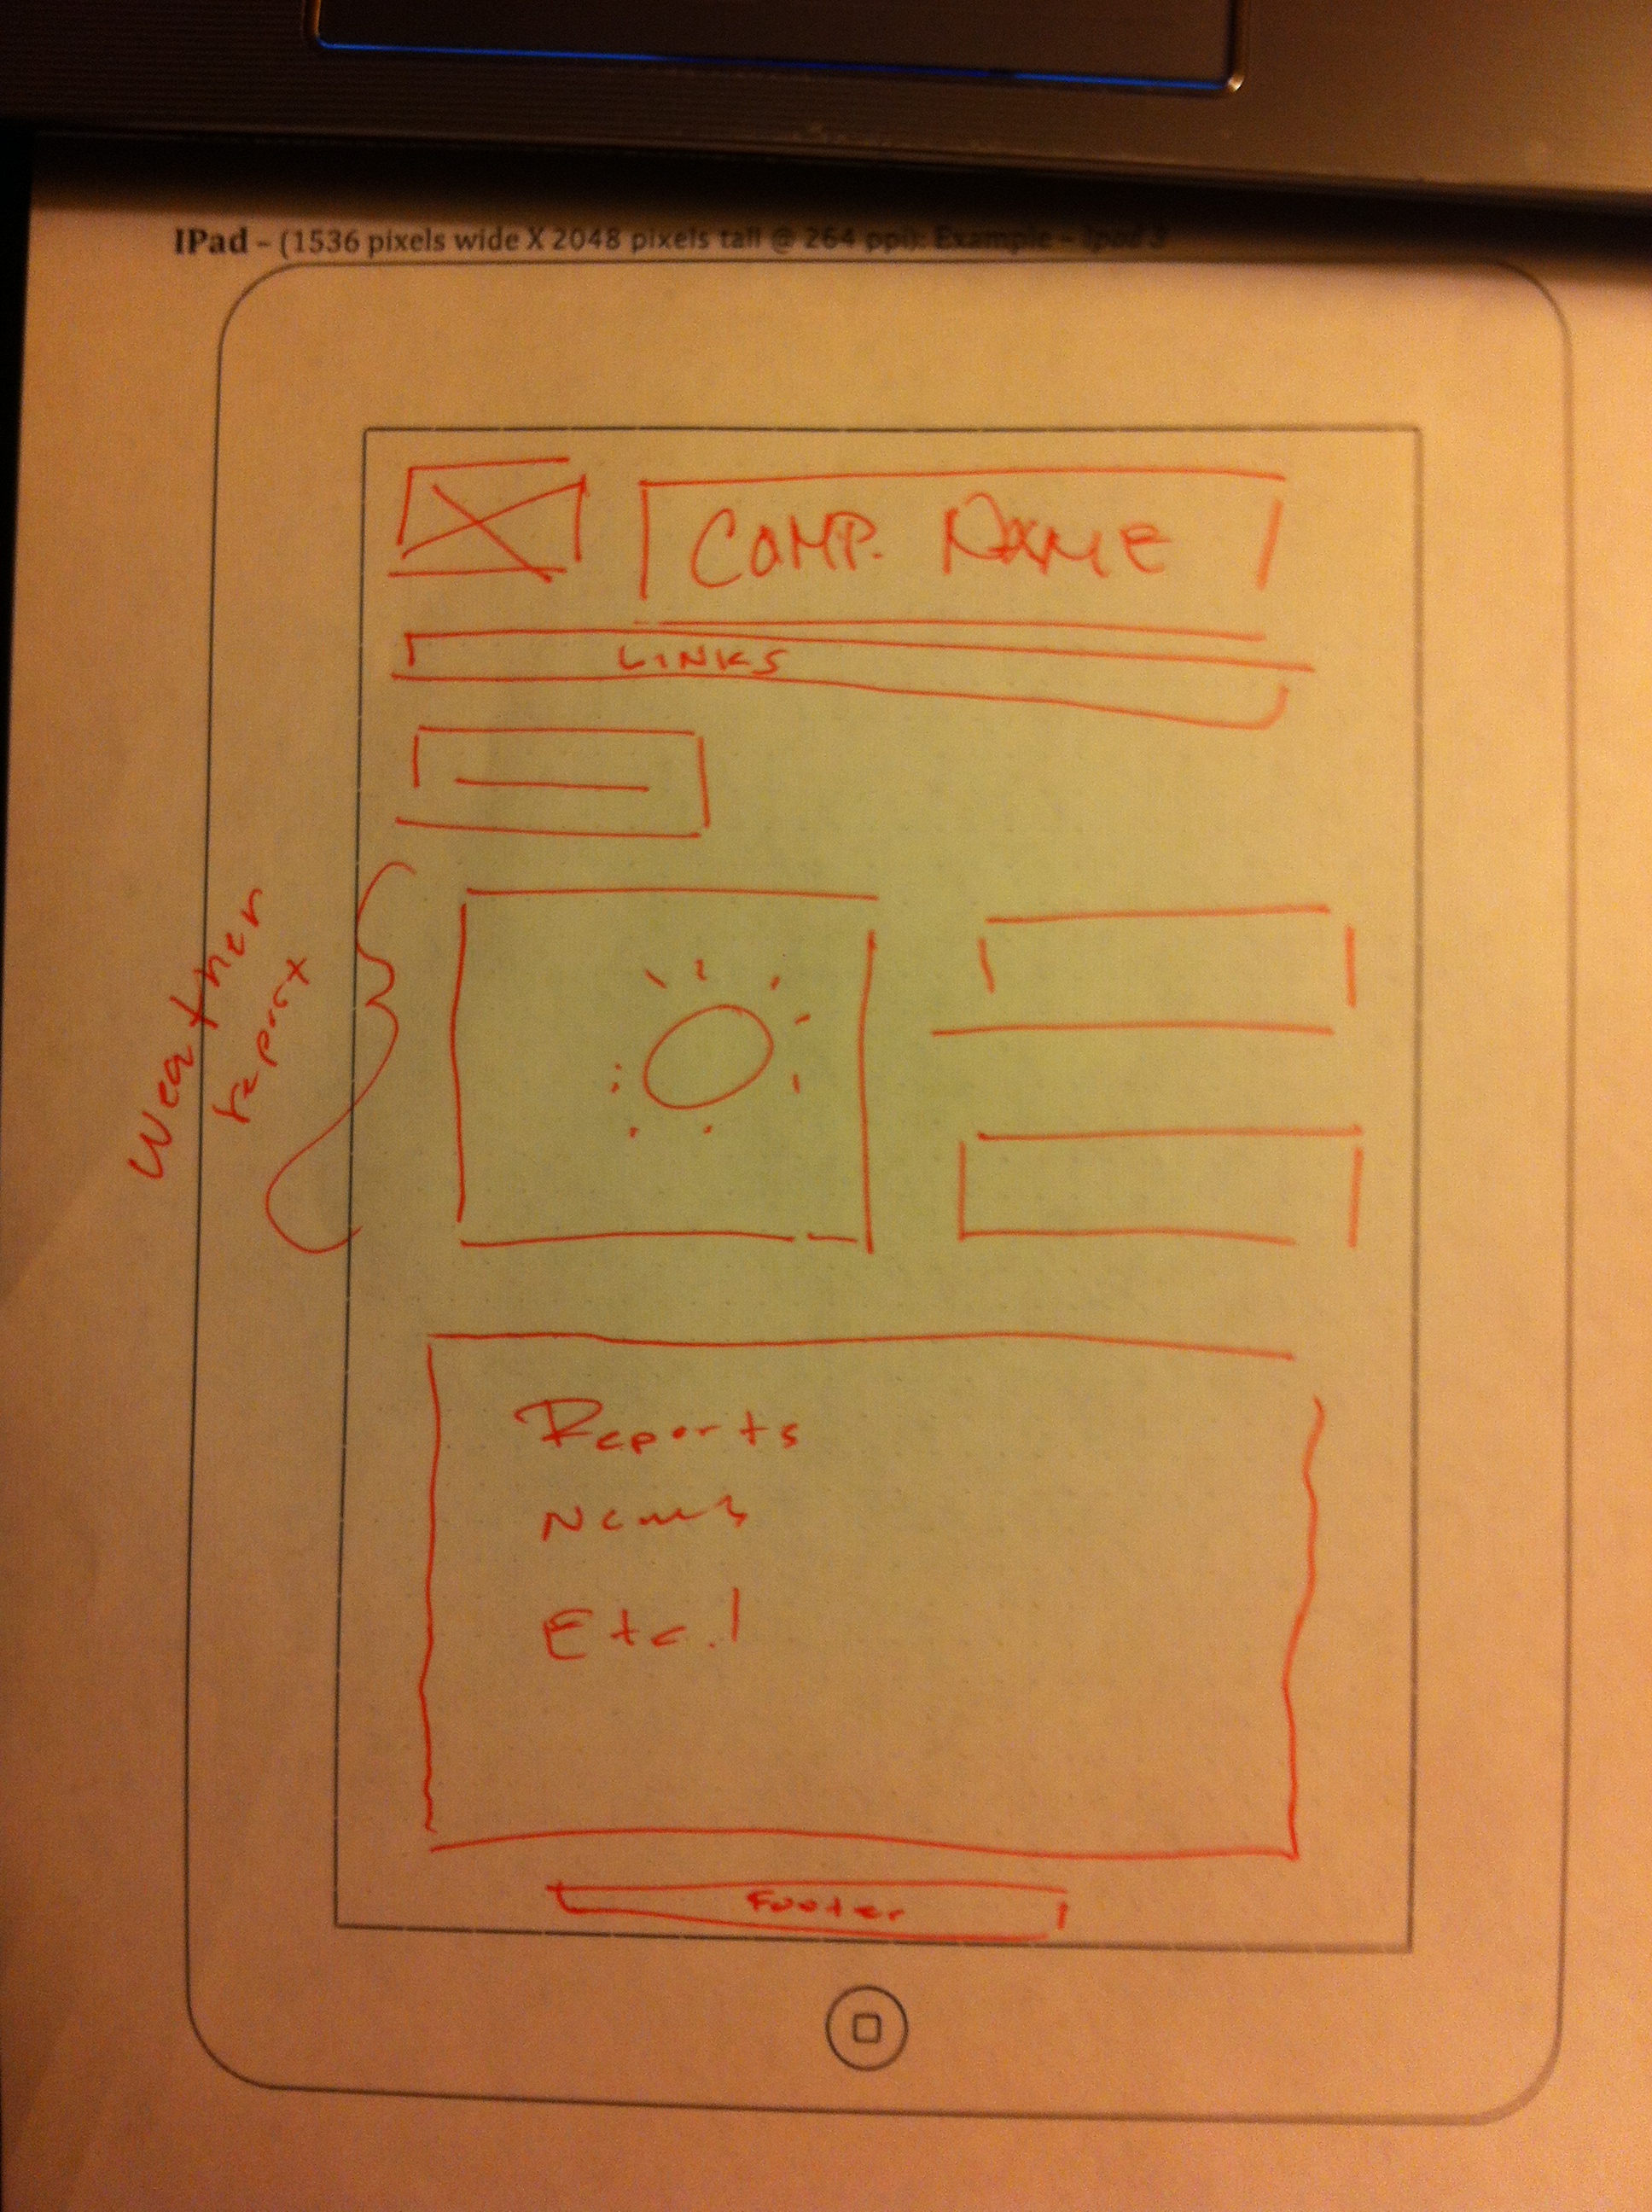 IPad – (1536 pixels wide X 2048 pixels tall @ 264 ppi): Example – Ipad 3
COMP. NAME
LINKS
Weather
report
Reports
News
Etc.!
Footer